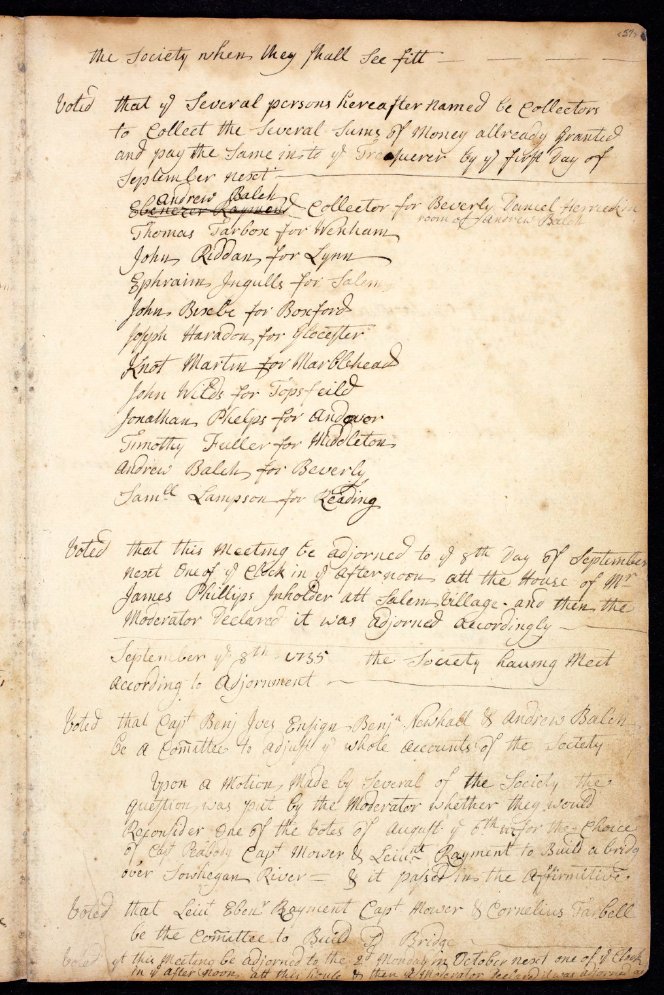 <37>
the Society when they shall See fitt
Voted that yͤ Several persons hereafter Named be Collectors
to Collect the Several Sums of Money allready granted
and pay the Same into yͤ Treasuerer by yͤ first Day of
September next
Andrew Balch
Ebenezer Rayment Collector for Beverly Daniel Herrick in
room of Andrew Balch
Thomas Tarbox for Wenham
John Riddan for Lynn
Ephraim Ingulls for Salem
John Bixbe for Boxford
Joseph Haradon for Glocester
Knot Martin for Marblehead
John Wilds for Topsfeild
Jonathan Phelps for Andover
Timothy Fuller for Middleton
Andrew Balch for Beverly
Samˡˡ Lampson for Reading
Voted that this Meeting be adjorned to yͤ 8th Day of September
next One of yͤ Clock in yͤ afternoon att the House of Mʳ
James Phillips Inholder att Salem Village and then the
Moderator Declared it was adjorned accordingly
September yͤ 8th 1735 the Society having Meet
According to Adjornment
Voted that Capᵗ Benj Ives Ensign Benjᵃ Newhall & Andrew Balch
be a Comittee to adjust yͤ whole accounts of the Society
Upon a Motion Made by Several of the Society the
question was put by the Moderator whether they would
Reconsider One of the Votes of August yͤ 6th for the Choice
of Capᵗ Peabody Capᵗ Mower & Leiuᵗ Rayment to Build a bridg
over Sowhegan River = & it passed in the Affirmitive.
Voted that Leiuᵗ Ebenʳ Rayment Capᵗ Mower & Cornelius Tarbell
be the Comittee to Build Sᵈ Bridge
Voted yᵗ this Meeting be adjorned to the 2ᵈ Monday in October next one of yͤ Clock
in yͤ after Noon att this house & then yͤ Moderator Declared it was adjorned